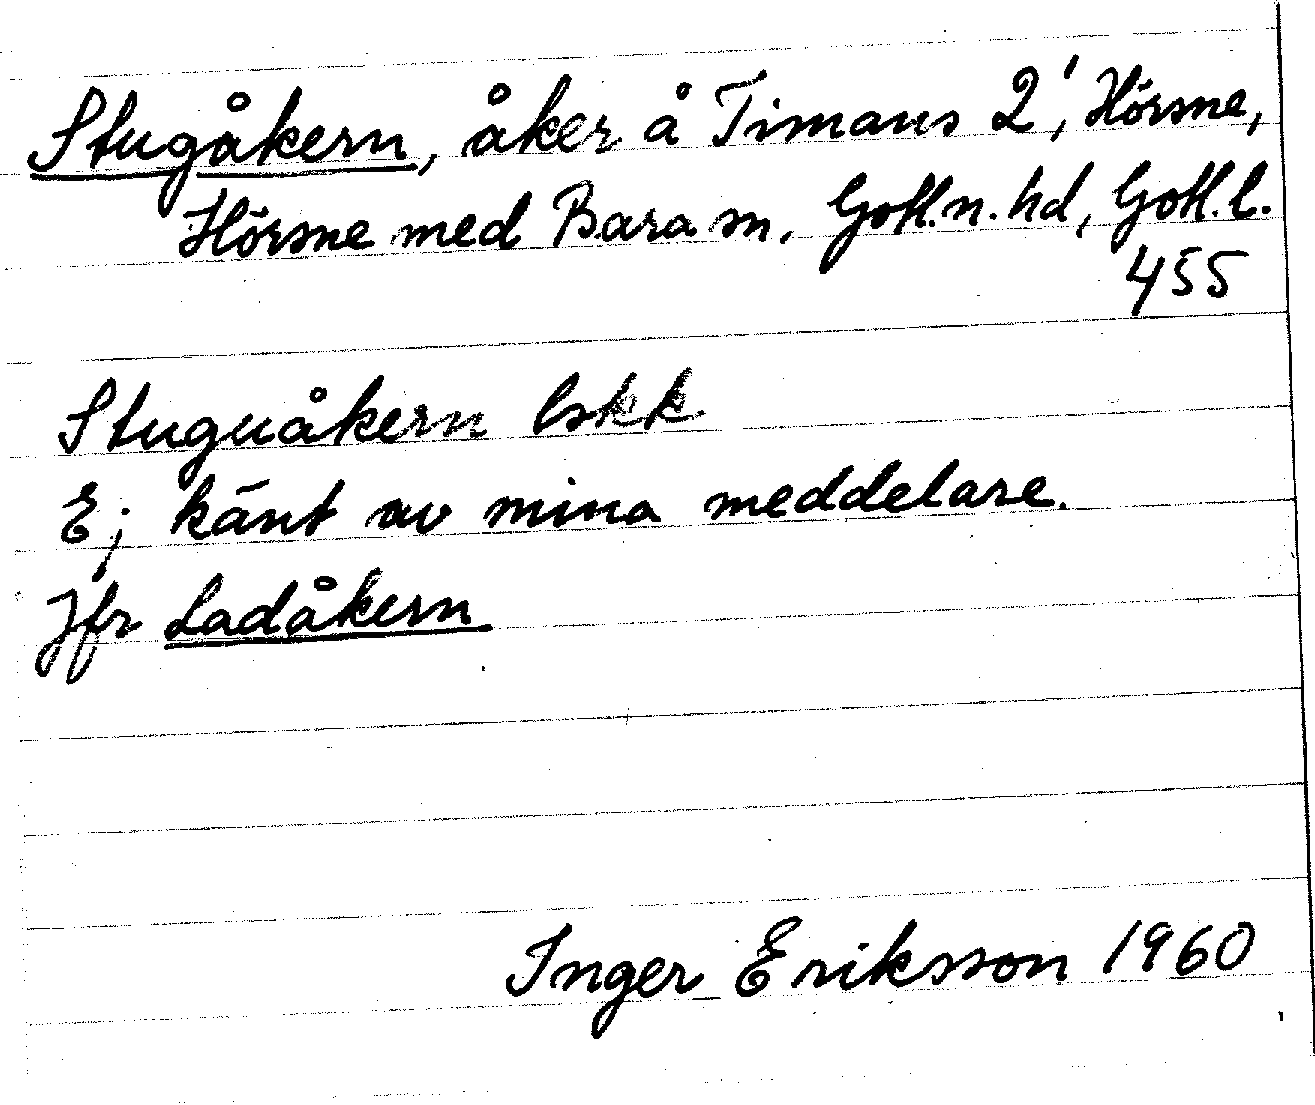 Stugåkern, åker å Timans 2', Hörsne,
Hörsne med Bara sn, Gotl.n. hd, Gotl. l.
455
Stuguåkern lskk
E; känt av mina meddelare.
Jfr Ladåkern
Inger Eriksson 1960